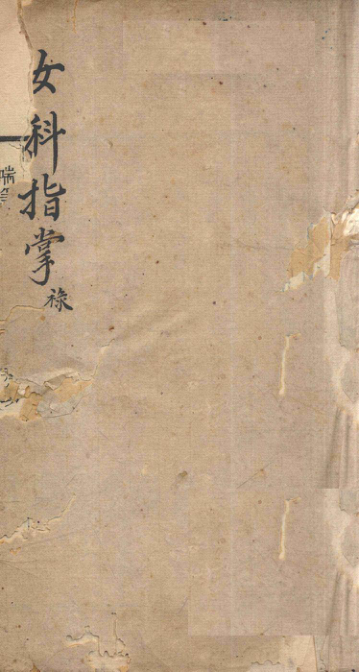 女科指掌
祿